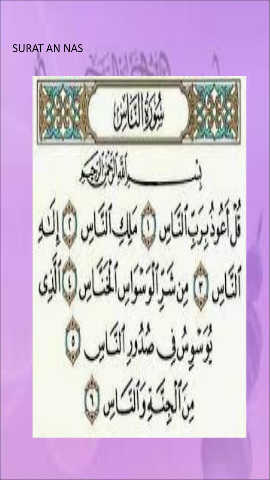 SURAT AN NAS
سُورَةُ النَّاسِ
بِسْمِ اللَّهِ الرَّحْمَٰنِ الرَّحِيمِ
قُلْ أَعُوذُ بِرَبِّ النَّاسِ ١ مَلِكِ النَّاسِ ٢ إِلَٰهِ
النَّاسِ ٣ مِن شَرِّ الْوَسْوَاسِ الْخَنَّاسِ ٤ الَّذِي
يُوَسْوِسُ فِي صُدُورِ النَّاسِ ٥
مِنَ الْجِنَّةِ وَالنَّاسِ ٦